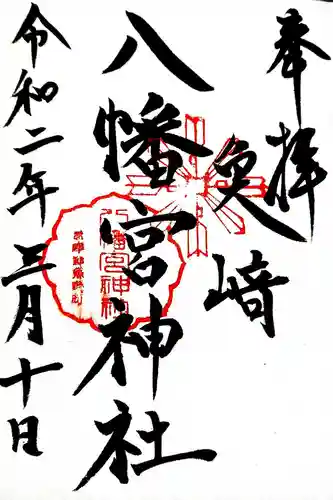 奉拝
魚﨑
八幡宮神社
八幡宮神社
令和二年三月十日